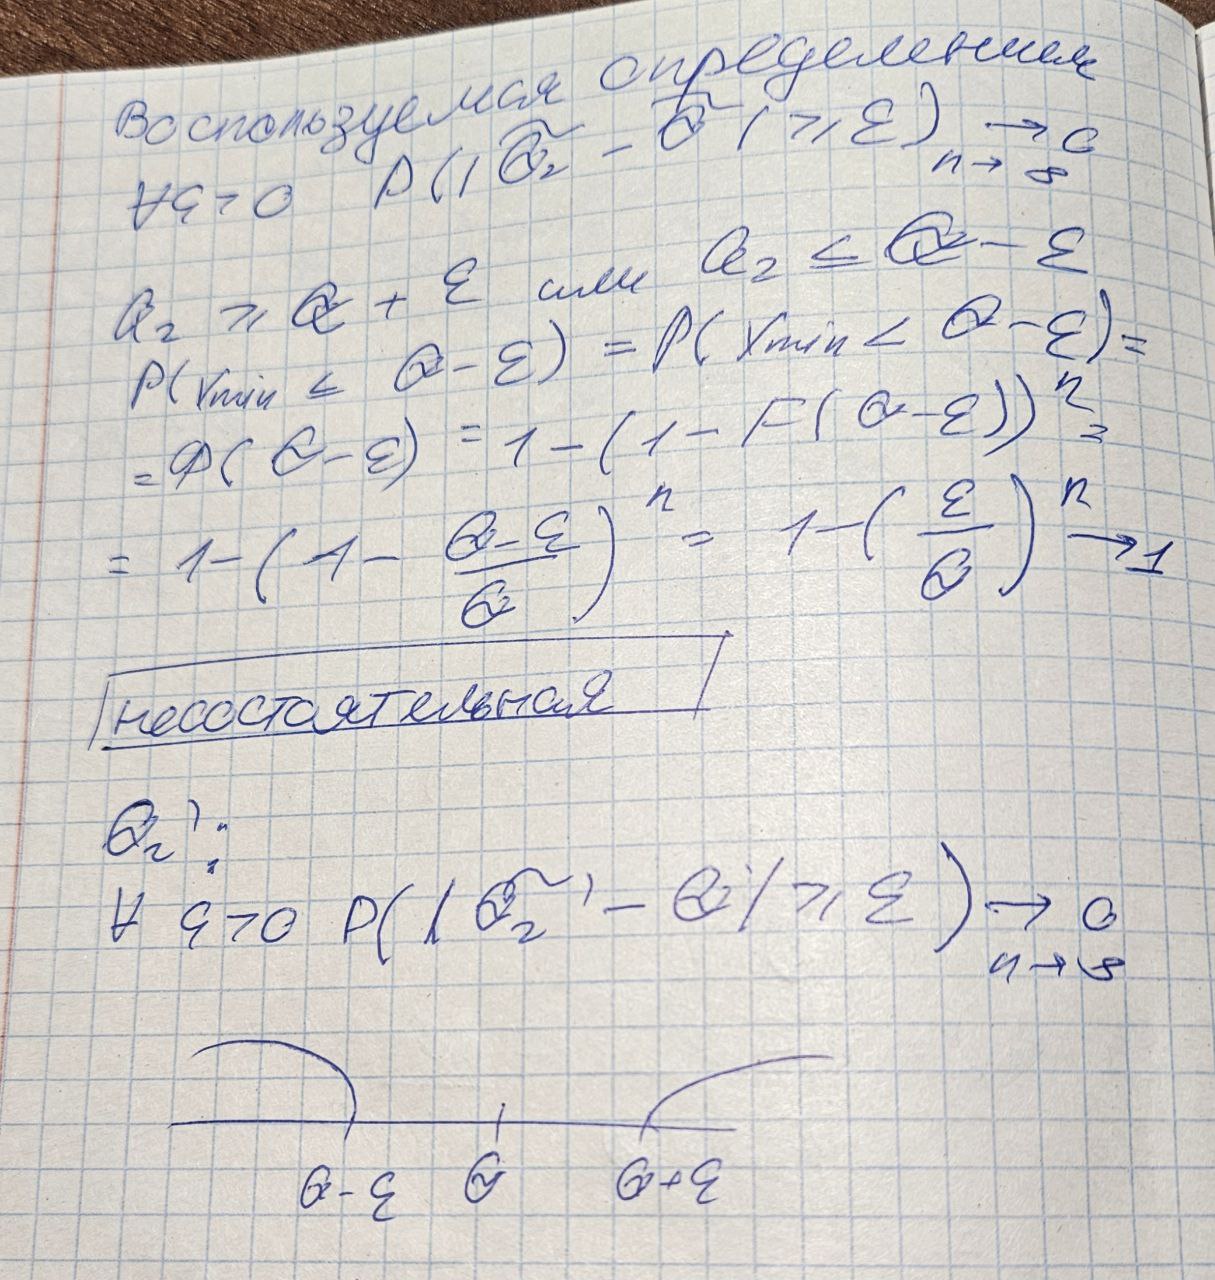 Воспользуемся определением
∀ε>0 P(|θ̃₂ - θ̃| ≥ ε) → 0
n→∞
θ₂ ≥ θ + ε или θ₂ ≤ θ - ε
P(xmin ≤ θ-ε) = P(xmin < θ-ε) =
= Φ(θ-ε) = 1-(1-F(θ-ε))ⁿ =
= 1-(1- (θ-ε)/θ)ⁿ = 1-(ε/θ)ⁿ → 1
несостоятельная
θ₂':
∀ ε>0 P(|θ̃₂' - θ| ≥ ε) → 0
n→∞
θ-ε θ θ+ε